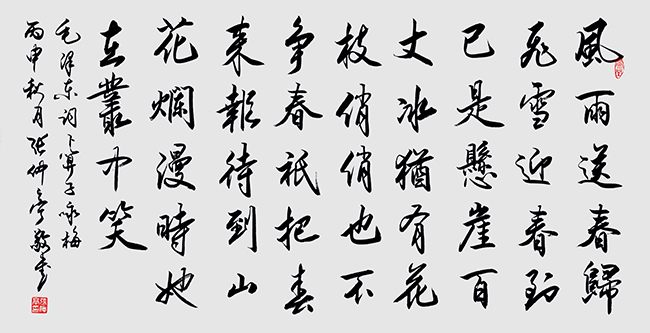 風雨送春歸
飛雪迎春到
已是懸崖百
丈冰猶有花
枝俏俏也不
争春祇把春
来報待到山
花爛漫時她
在叢中笑
毛泽东词卜算子咏梅
丙申秋月张仲亭敬书